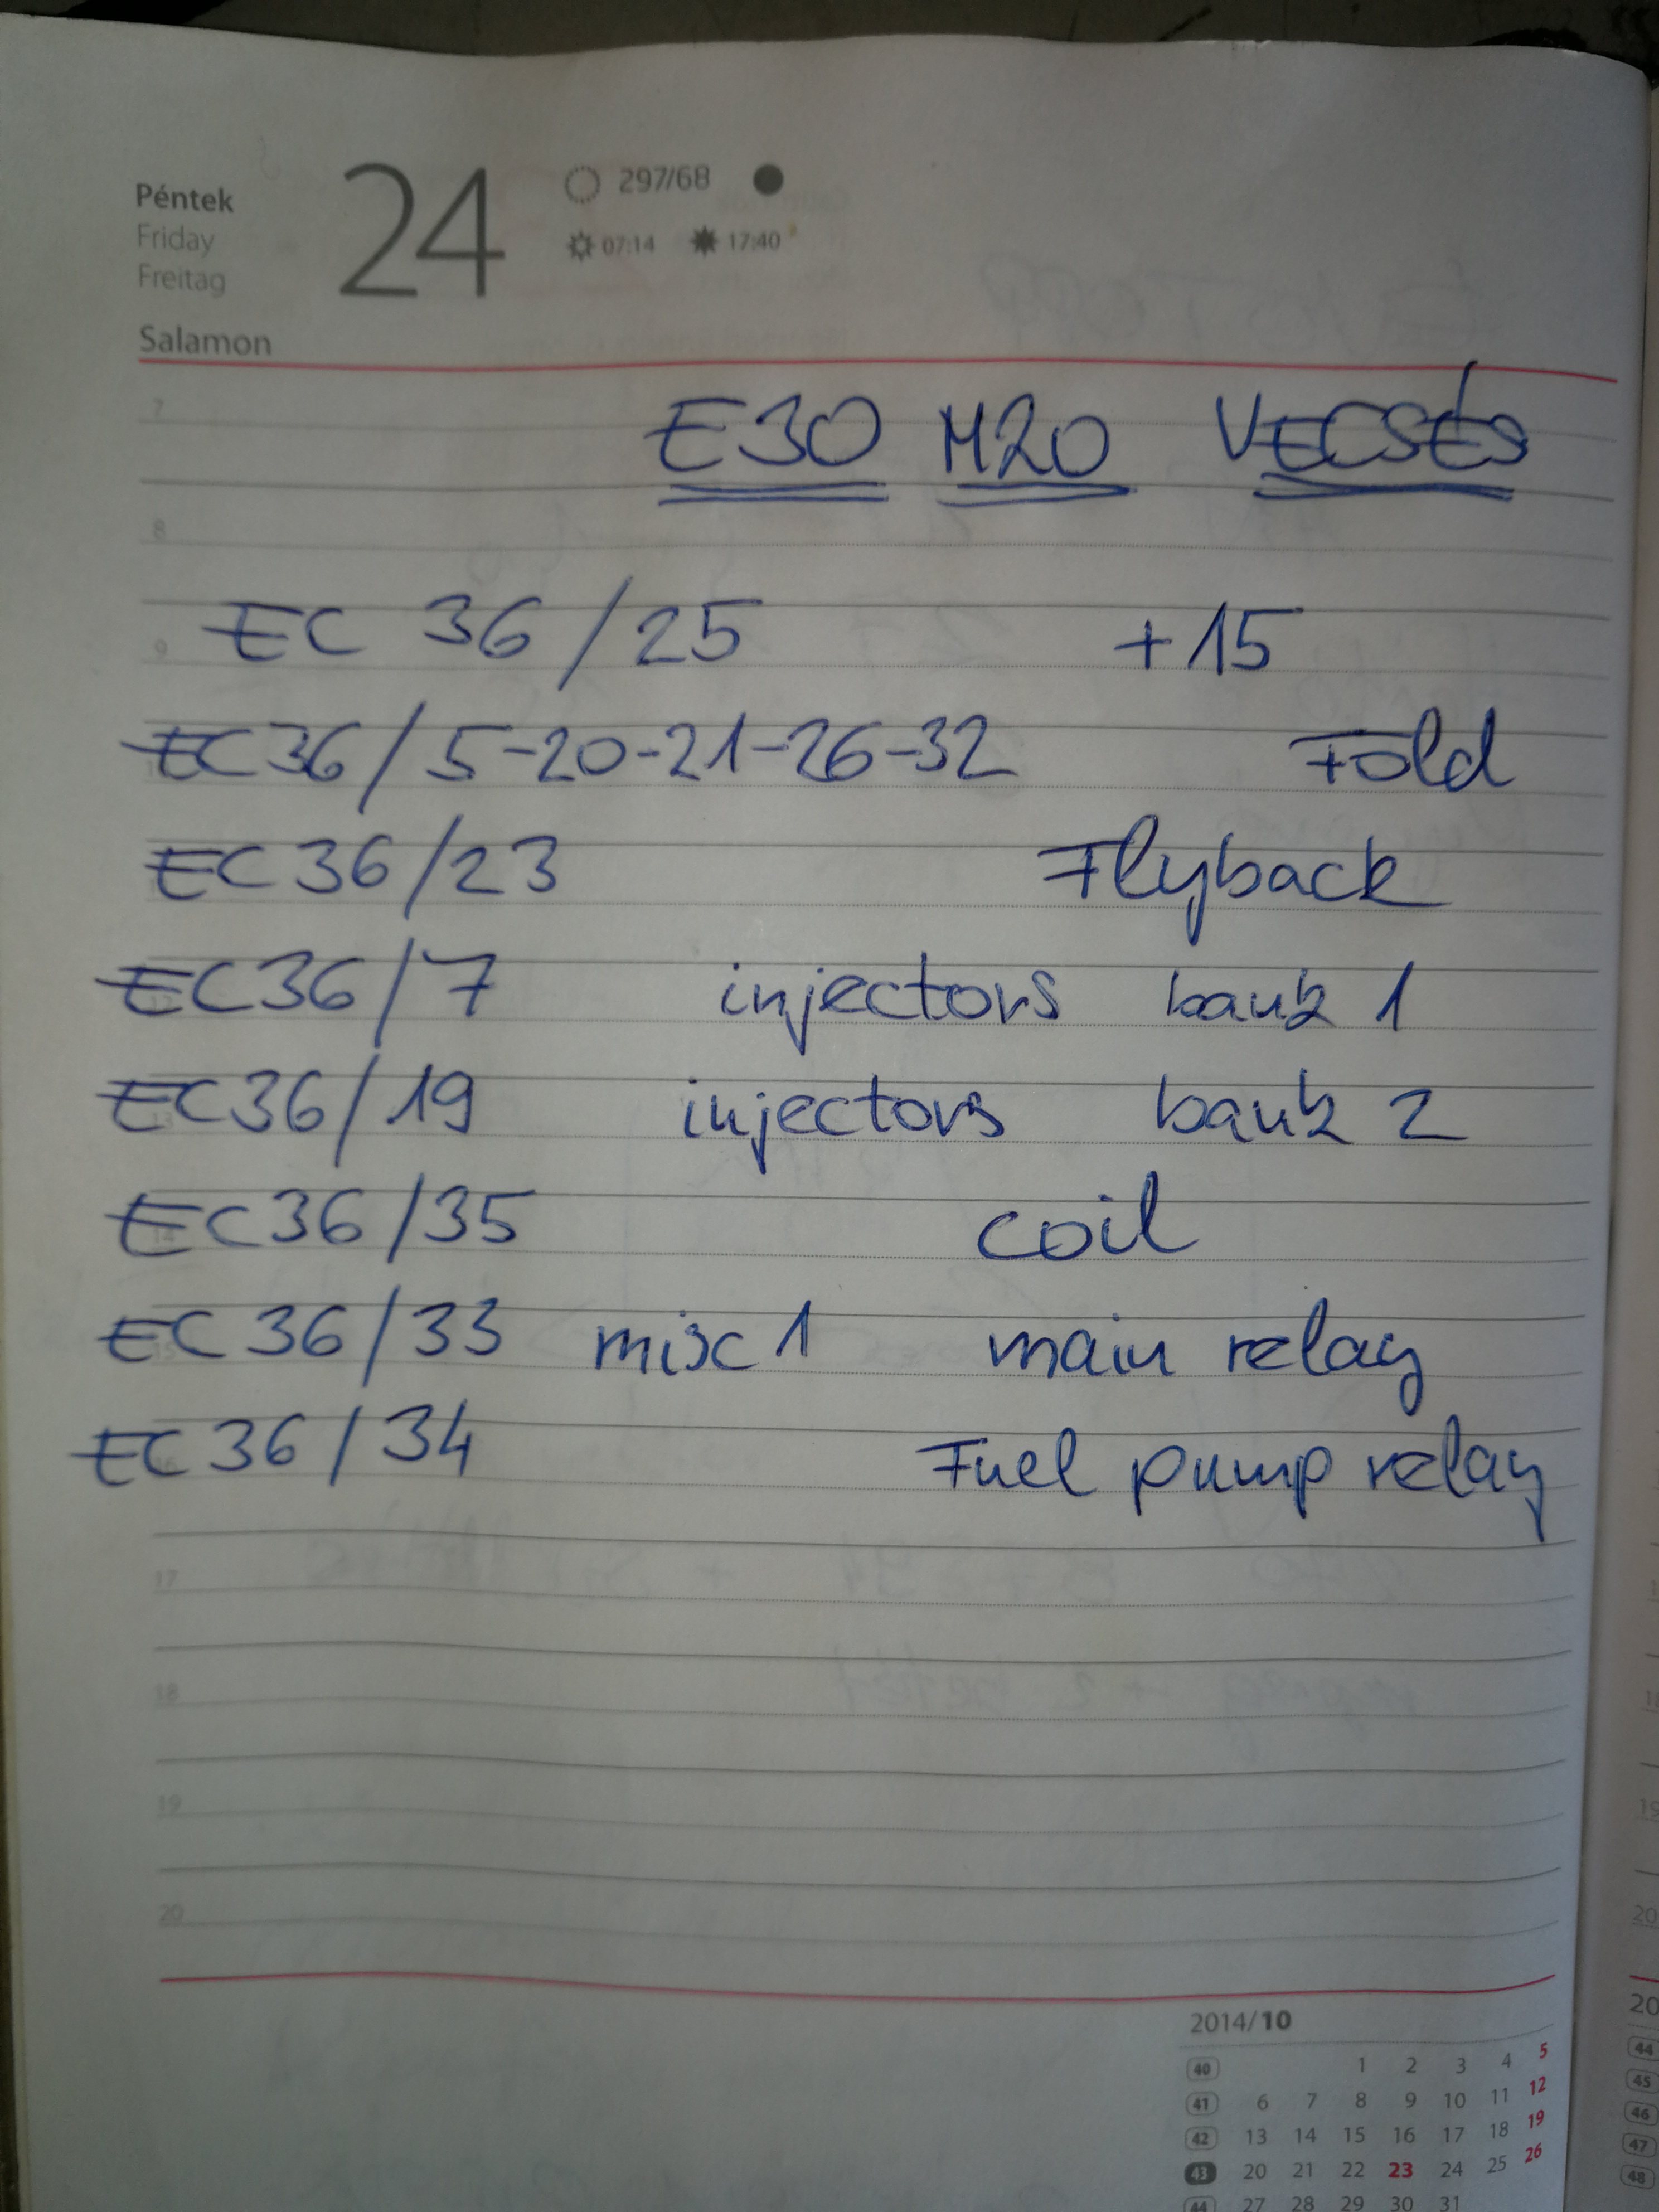 Péntek
Friday
Freitag
24
297/68
07:14 17:40
Salamon
7
E30 M20 VECSÉS
8
9
EC 36/25 +15
EC36/5-20-21-26-32 Föld
EC36/23 Flyback
12
EC36/7 injectors bank 1
13
EC36/19 injectors bank 2
14
EC36/35 coil
15
EC36/33 misc 1 main relay
16
EC36/34 Fuel pump relay
17
18
19
20
2014/10
40 1 2 3 4 5
41 6 7 8 9 10 11 12
42 13 14 15 16 17 18 19
43 20 21 22 23 24 25 26
44 27 28 29 30 31
20
44
45
46
47
48